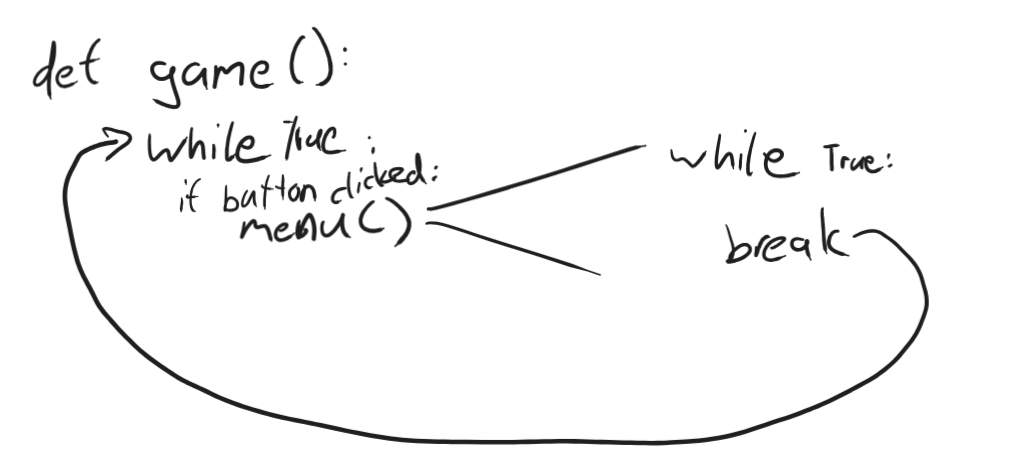 def game():
while True :
if button clicked:
menu()
while True:
break